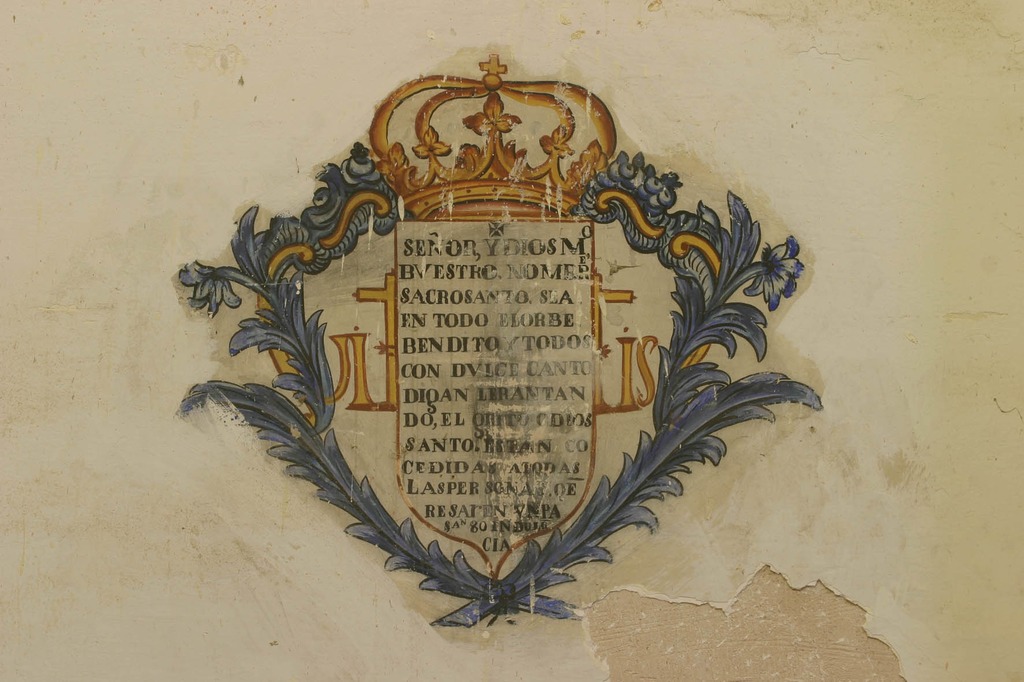 SEÑOR, Y DIOS Mº
BVESTRO. NOMER
SACROSANTO. SEA
EN TODO ELORBE
BENDITO Y TODOS
CON DVLCE CANTO
DIGAN LEBANTAN
DO, EL GRITO DIOS
SANTO. ESTAN CO
CEDIDAS ATODAS
LASPERSONAS. QE
RESAREN
SAN 80 INDULG
CIA